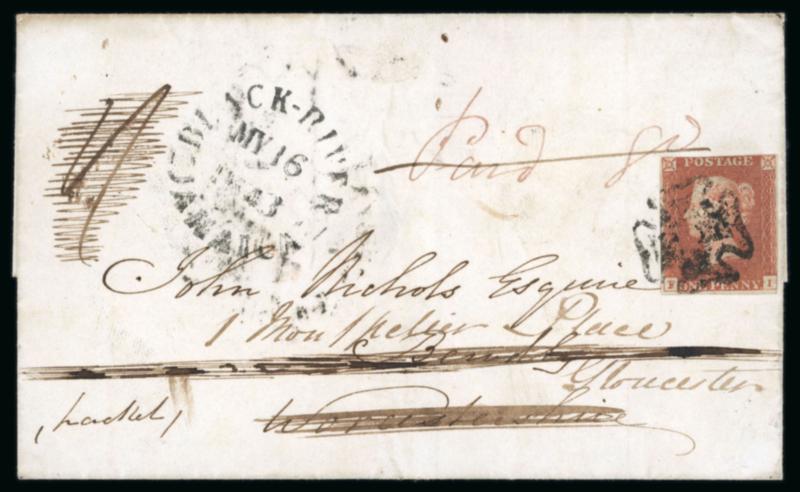 BLACK-RIVER
MY 16
JAMAICA
Paid
POSTAGE
F ONE PENNY I
John Nichols Esquire
1 Montpelier Place
Gloucester
Packet
Worcestershire